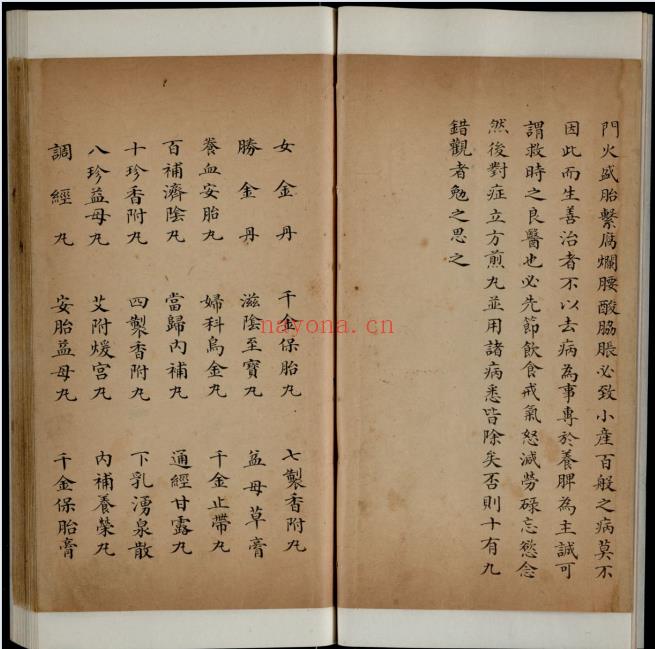 門火盛胎繫腐爛腰酸脇脹必致小產百般之病莫不
因此而生善治者不以去病為事專於養脾為主誠可
謂救時之良醫也必先節飲食戒氣怒減勞碌忘慾念
然後對症立方煎丸並用諸病悉皆除矣否則十有九
錯觀者勉之思之
女金丹 千金保胎丸 七製香附丸
勝金丹 滋陰至寶丸 益母草膏
養血安胎丸 婦科烏金丸 千金止帶丸
百補濟陰丸 當歸內補丸 通經甘露丸
十珍香附丸 四製香附丸 下乳湧泉散
八珍益母丸 艾附煖宮丸 內補養榮丸
調經丸 安胎益母丸 千金保胎膏
nayona.cn